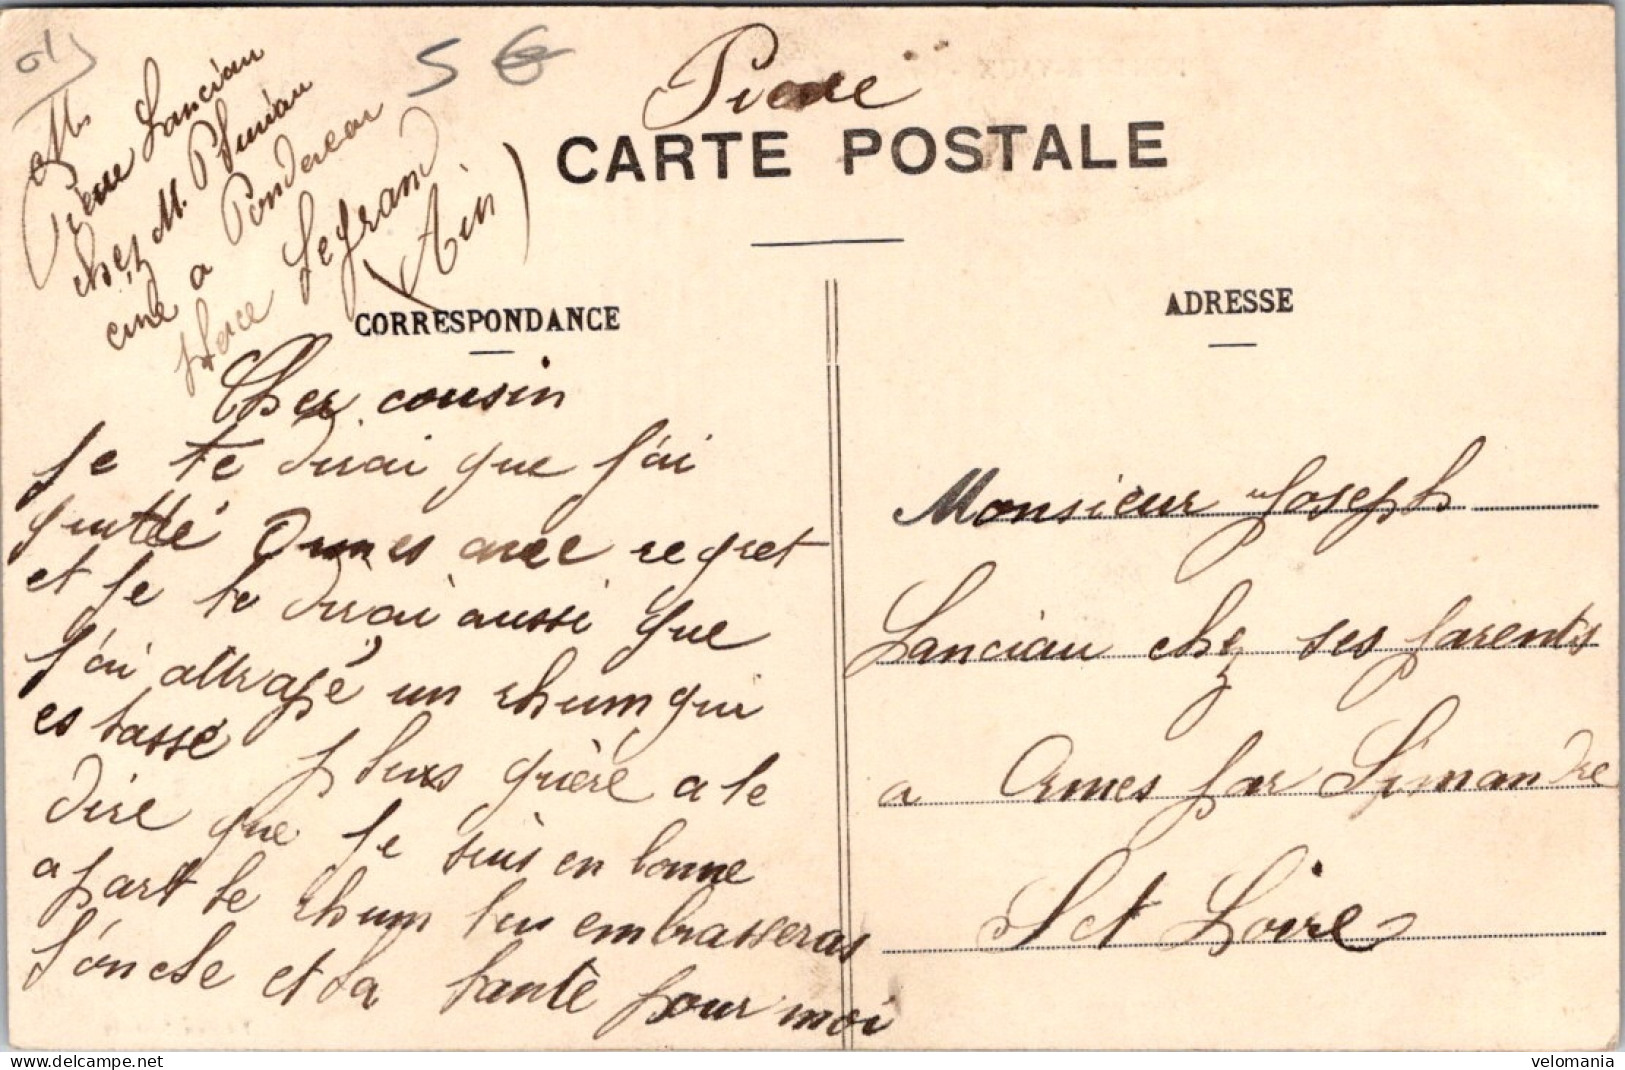 5 €
Mr
Pierre Lanciau
chez M. Pluniau
ciné a Pondevau
place Lefranc
(Ain)
Pierre
CARTE POSTALE
CORRESPONDANCE
ADRESSE
Cher cousin
je te dirai que j'ai
quitté Ormes avec regret
et je te dirai aussi que
j'ai attrapé un rhum qui
es tassé plus guère a te
dire que je suis en bonne
a part le rhum tu embrasseras
l'oncle et la tante pour moi
Monsieur Joseph
Lanciau chez ses parents
a Ormes par Simandre
S et Loire
velomania